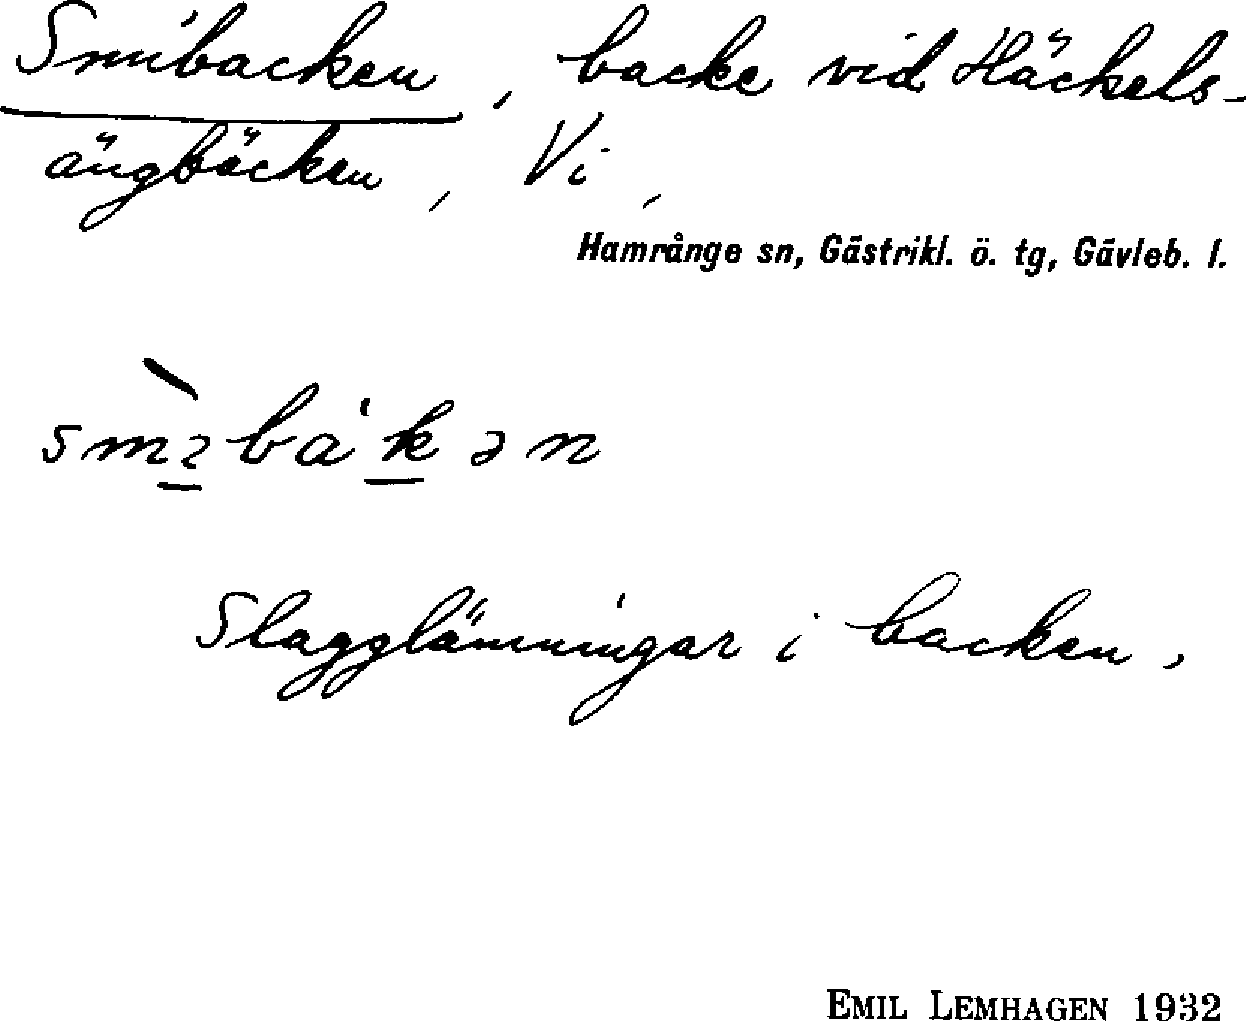 Smibacken, backe vid Häckels-
ängbäcken, Vi,
Hamrånge sn, Gästrikl. ö. tg, Gävleb. l.
smìbα'kən
Slagglämningar i backen.
EMIL LEMHAGEN 1932